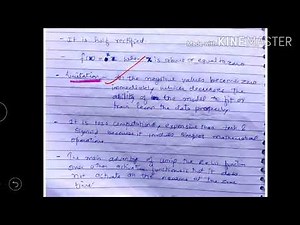 KINEMASTER
- It is half rectified
- f(x) = x when x is above or equal to zero
- Limitation - All the negative values become zero
immediately which decreases the
ability of the model to fit or
train from the data properly
- It is less computationally expensive than tanh &
sigmoid because it involves simpler mathematical
operations
- The main advantage of using the ReLU function
over other activation functions is that it does
not activate all the neurons at the same
time